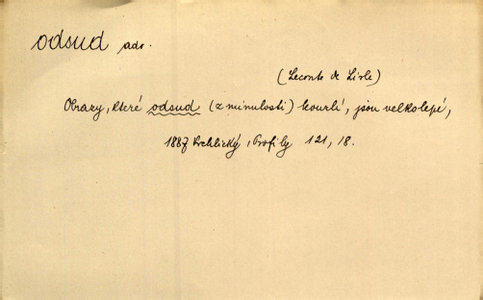 odsud adv.
(Leconte de Lisle)
Obrazy, které odsud (z minulosti) kouzlí, jsou velkolepé,
1887 Vrchlický, Profily 121, 18.